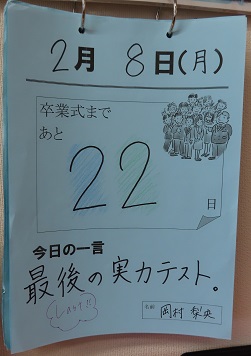 2月 8日(月)
卒業式まで
あと
22
日
今日の一言
最後の実力テスト。
名前 岡村 梨央